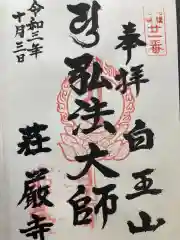 奉拝
廿一番
白王山
弘法大師
令和三年
十月三日
荘厳寺